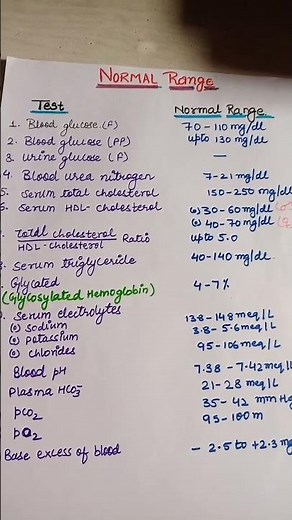 NORMAL Range
Test Normal Range
1. Blood glucose (F) 70-110 mg/dl
2. Blood glucose (PP) upto 130 mg/dl
3. Urine glucose (F) —
4. Blood urea nitrogen 7-21 mg/dl
5. Serum total cholesterol 150-250 mg/dl
6. Serum HDL- cholesterol (♂) 30-60 mg/dl
(♀) 40-70 mg/dl
Total cholesterol / HDL-cholesterol Ratio upto 5.0
8. Serum triglyceride 40-140 mg/dl.
Glycated 4-7%
(Glycosylated Hemoglobin)
Serum electrolytes
(•) Sodium 138-148 meq/L
(•) Potassium 3.8-5.6 meq/L
(•) chlorides 95-106 meq/L
Blood pH 7.38-7.42 meq/L
Plasma HCO3⁻ 21-28 meq/L
pCO2 35-42 mm Hg
pO2 95-100 m
Base excess of blood - 2.5 to +2.3 m